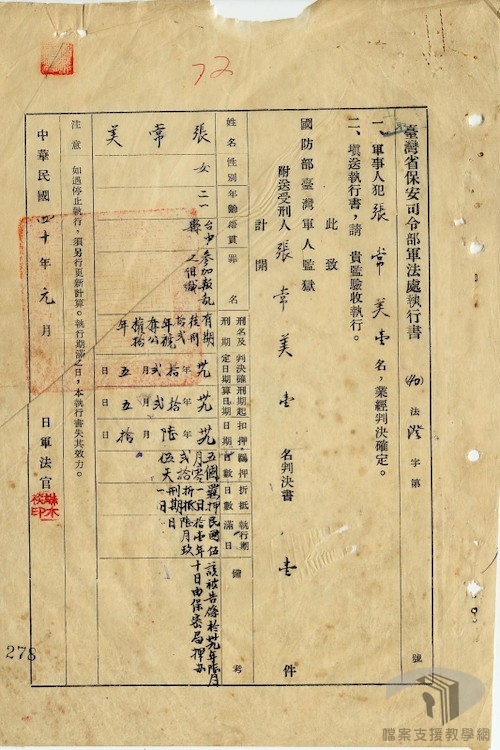 72
臺灣省保安司令部軍法處執行書 (40) 法 澄 字第 號
一、軍事人犯張常美壹名，業經判決確定。
二、填送執行書，請 貴監驗收執行。
此致
國防部臺灣軍人監獄
附送受刑人張常美壹名判決書壹件
計開
姓名 性別 年齡 籍貫 罪名 刑名及刑期 判決確定日期 刑期起算日期 扣押日期 羈押日數 折抵日數 執行期滿日 備考
張常美
女
二一
台中縣
參加叛亂之組織
有期徒刑拾貳年褫奪公權拾年
卅年拾貳月五日
卅年拾貳月五日
該被告係於卅九年陸月十日由保密局押
注意 如遇停止執行，須另行更新計算。執行期滿之日，本執行書失其效力。
中華民國四十年元月 日軍法官
278
檔案支援教學網